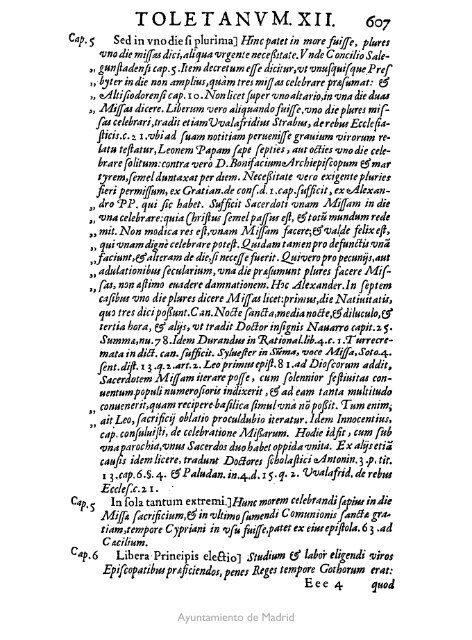 TOLETANVM. XII. 607
Cap. 5 Sed in vno die si plurima] Hinc patet in more fuisse, plures
vno die missas dici, aliqua vrgente necessitate. Vnde Concilio Sale-
,, gunstadensi cap. 5. Item decretum esse dicitur, vt vnusquisque Pres
,, byter in die non amplius, quàm tres missas celebrare præsumat: &
,, Altisodorensi cap. 10. Non licet super vno altario, in vna die duas
,, Missas dicere. Liberum vero aliquando fuisse, vno die plures mis-
sas celebrari, tradit etiam Vvalafridius Strabus, de rebus Ecclesia-
sticis. c. 21. vbi ad suam notitiam peruenisse grauium virorum re-
latu testatur, Leonem Papam sæpe septies, aut octies vno die cele-
brare solitum: contra verò D. Bonifacium Archiepiscopum & mar
tyrem, semel duntaxat per diem. Necessitate vero exigente pluries
fieri permissum, ex Gratian. de cons. d. 1. cap. sufficit, ex Alexan-
,, dro PP. qui sic habet. Sufficit Sacerdoti vnam Missam in die
,, vna celebrare: quia Christus semel passus est, & totũ mundum rede
,, mit. Non modica res est, vnam Missam facere; & valde felix est,
,, qui vnam dignè celebrare potest. Quidam tamen pro defunctis vnã
,, faciunt, & alteram de die, si necesse fuerit. Qui vero pro pecunijs, aut
,, adulationibus secularium, vna die præsumunt plures facere Mis-
,, sas, non æstimo euadere damnationem. Hoc Alexander. In septem
casibus vno die plures dicere Missas licet: primus, die Natiuitatis,
quo tres dici possunt. Can. Nocte sancta, media nocte, & diluculo, &
tertia hora, & alijs, vt tradit Doctor insignis Nauarro capit. 25.
Summa, nu. 78. Idem Durandus in Rational. lib. 4. c. 1. Turrecre-
mata in dict. can. sufficit. Syluester in Sũma, voce Missa, Soto. 4.
sent. dist. 13. q. 2. art. 2. Leo primus epist. 81. ad Dioscorum addit,
Sacerdotem Missam iterare posse, cum solennior festiuitas con-
uentum populi numerosioris indixerit, & ad eam tanta multitudo
conuenerit, quam recipere basilica simul vna nõ possit. Tum enim,
ait Leo, sacrificij oblatio proculdubio iteratur. Idem Innocentius,
cap. consuluisti, de celebratione Missarum. Hodie id fit, cum sub
vna parochia, vnus Sacerdos duo habet oppida vnita. Ex alijs etiã
causis idem licere, tradunt Doctores scholastici Antonin. 3. p. tit.
13. cap. 6. §. 4. & Paludan. in. 4. d. 15. q. 2. Vvalafrid. de rebus
Eccles. c. 21.
Cap. 5 In sola tantum extremi.] Hunc morem celebrandi sæpius in die
Missæ sacrificium, & in vltimo sumendi Communionis sanctæ gra-
tiam, tempore Cypriani in vsu fuisse, patet ex eius epistola. 63. ad
Cæcilium.
Cap. 6 Libera Principis electio] Studium & labor eligendi viros
Episcopatibus præficiendos, penes Reges tempore Gothorum erat:
Eee 4 quod
Ayuntamiento de Madrid